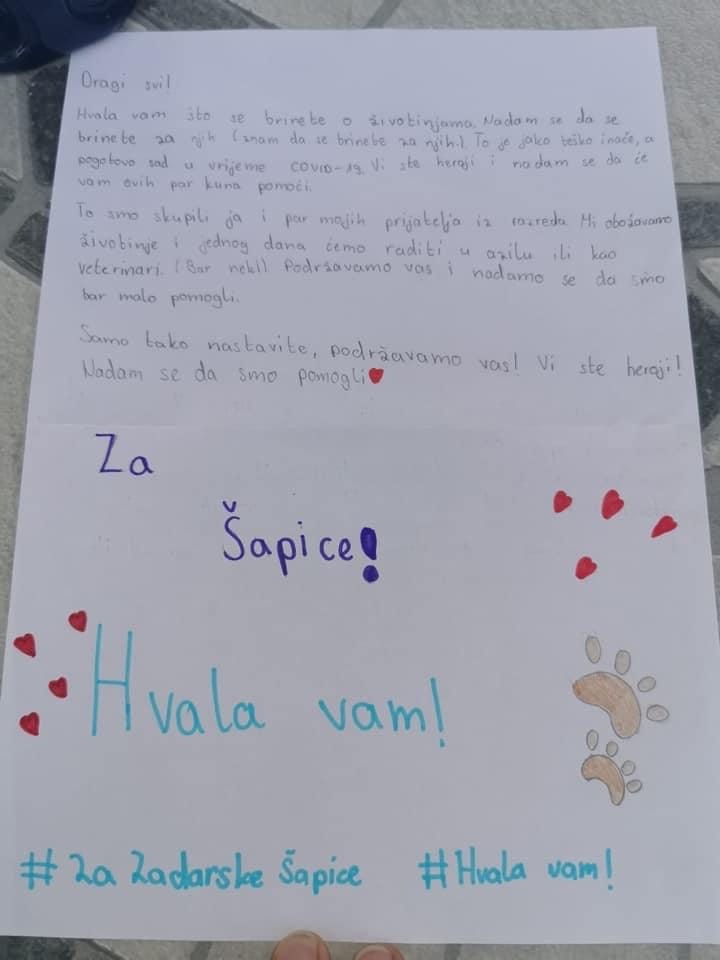 Dragi svi!
Hvala vam što se brinete o životinjama. Nadam se da se
brinete za njih (znam da se brinete za njih.) To je jako teško inače, a
pogotovo sad u vrijeme COVID-19. Vi ste heroji i nadam se da će
vam ovih par kuna pomoći.
To smo skupili ja i par mojih prijatelja iz razreda. Mi obožavamo
životinje i jednog dana ćemo raditi u azilu ili kao
veterinari. (Bar neki). Podržavamo vas i nadamo se da smo
bar malo pomogli.
Samo tako nastavite, podržavamo vas! Vi ste heroji!
Nadam se da smo pomogli♥
Za
Šapice!
Hvala vam!
#Za Zadarske Šapice #Hvala vam!